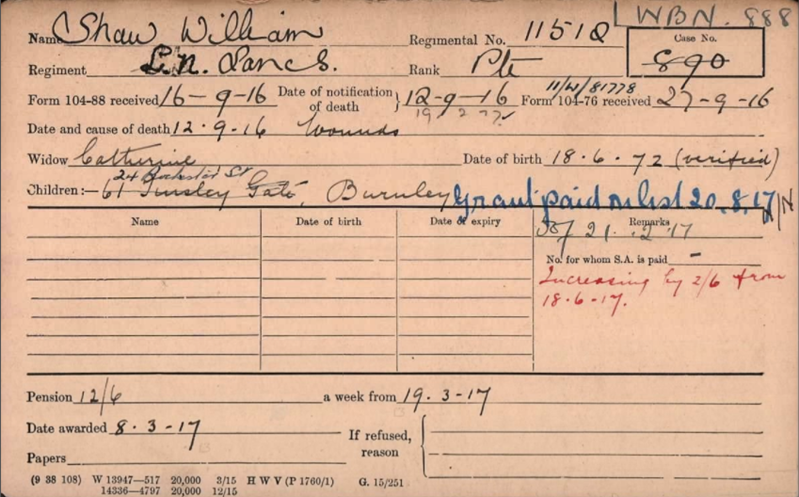 LWBN. 888
Name Shaw William Regimental No. 11518 Case No.
890
Regiment L.N. Lancs. Rank Pte
11/W/81778
Form 104-88 received 16-9-16 Date of notification of death } 12-9-16 Form 104-76 received 27-9-16
Date and cause of death 12.9.16 Wounds
Widow Catherine Date of birth 18.6.72 (verified)
24 St
Children:— 61 Gate, Burnley Grant paid on list 20.8.17
Name Date of birth Date of expiry Remarks
21. 2 17
No. for whom S.A. is paid -
Increasing by 2/6 from
18.6.17.
Pension 12/6 a week from 19.3-17
Date awarded 8.3-17 If refused, reason
Papers
(9 38 108) W 13947—517 20,000 3/15 H W V (P 1760/1) G. 15/251
14336—4797 20,000 12/15